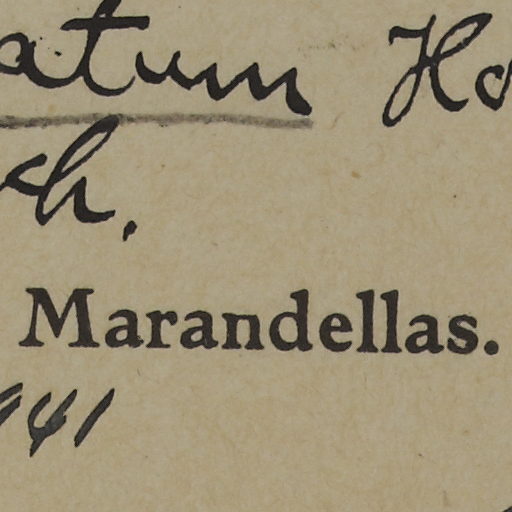 atum Ho
ch.
Marandellas.
941